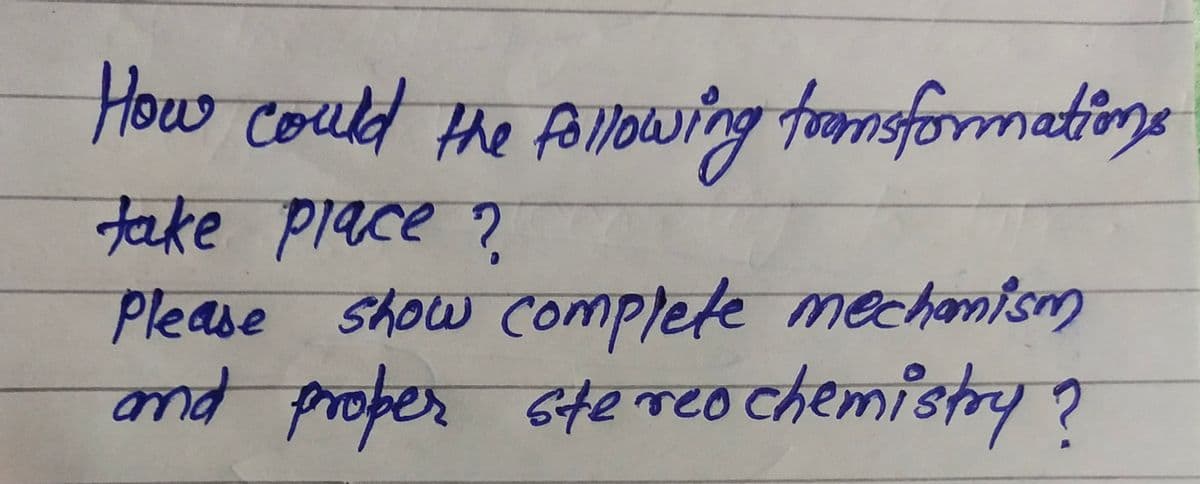 How could the following transformations
take place ?
Please show complete mechanism
and proper stereochemistry ?